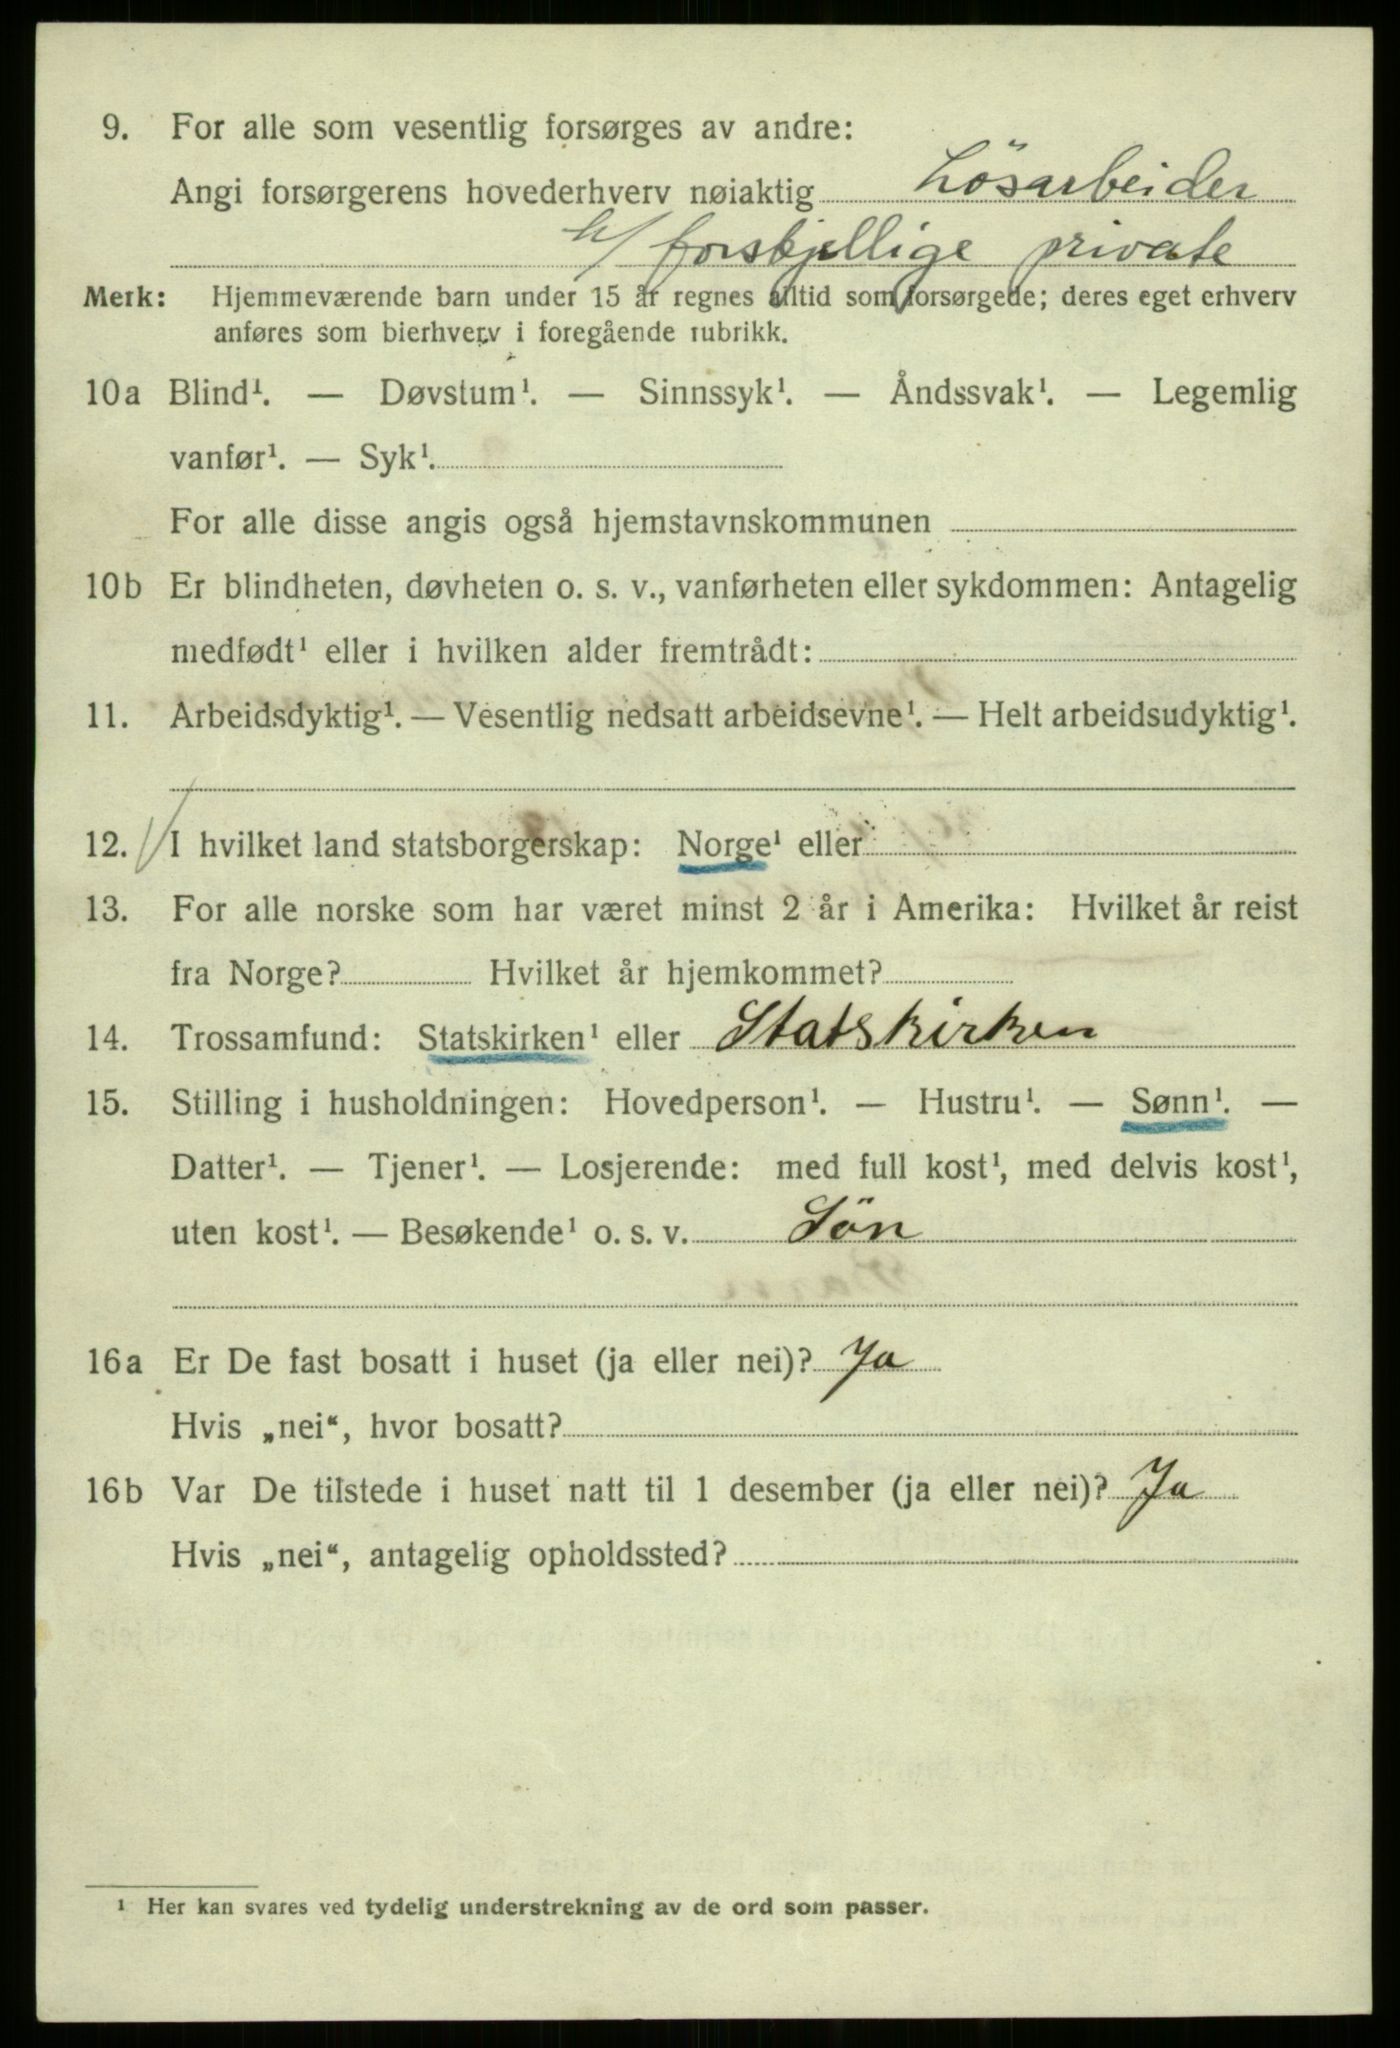 9. For alle som vesentlig forsørges av andre:
Angi forsørgerens hovederhverv nøiaktig Lösarbeider
h/ forskjellige private
Merk: Hjemmeværende barn under 15 år regnes alltid som forsørgede; deres eget erhverv
anføres som bierhverv i foregående rubrikk.
10a Blind¹. — Døvstum¹. — Sinnssyk¹. — Åndssvak¹. — Legemlig
vanfør¹. — Syk¹.
For alle disse angis også hjemstavnskommunen
10b Er blindheten, døvheten o. s. v., vanførheten eller sykdommen: Antagelig
medfødt¹ eller i hvilken alder fremtrådt:
11. Arbeidsdyktig¹. — Vesentlig nedsatt arbeidsevne¹. — Helt arbeidsudyktig¹.
12. I hvilket land statsborgerskap: Norge¹ eller
13. For alle norske som har været minst 2 år i Amerika: Hvilket år reist
fra Norge? Hvilket år hjemkommet?
14. Trossamfund: Statskirken¹ eller Statskirken
15. Stilling i husholdningen: Hovedperson¹. — Hustru¹. — Sønn¹. —
Datter¹. — Tjener¹. — Losjerende: med full kost¹, med delvis kost¹,
uten kost¹. — Besøkende¹ o. s. v. Sön
16a Er De fast bosatt i huset (ja eller nei)? Ja
Hvis „nei“, hvor bosatt?
16b Var De tilstede i huset natt til 1 desember (ja eller nei)? Ja
Hvis „nei“, antagelig opholdssted?
¹ Her kan svares ved tydelig understrekning av de ord som passer.